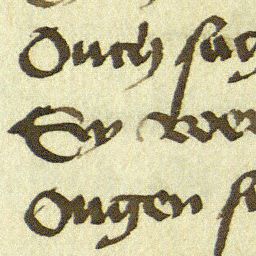 Ouch sag
Ey wer
Ougen s